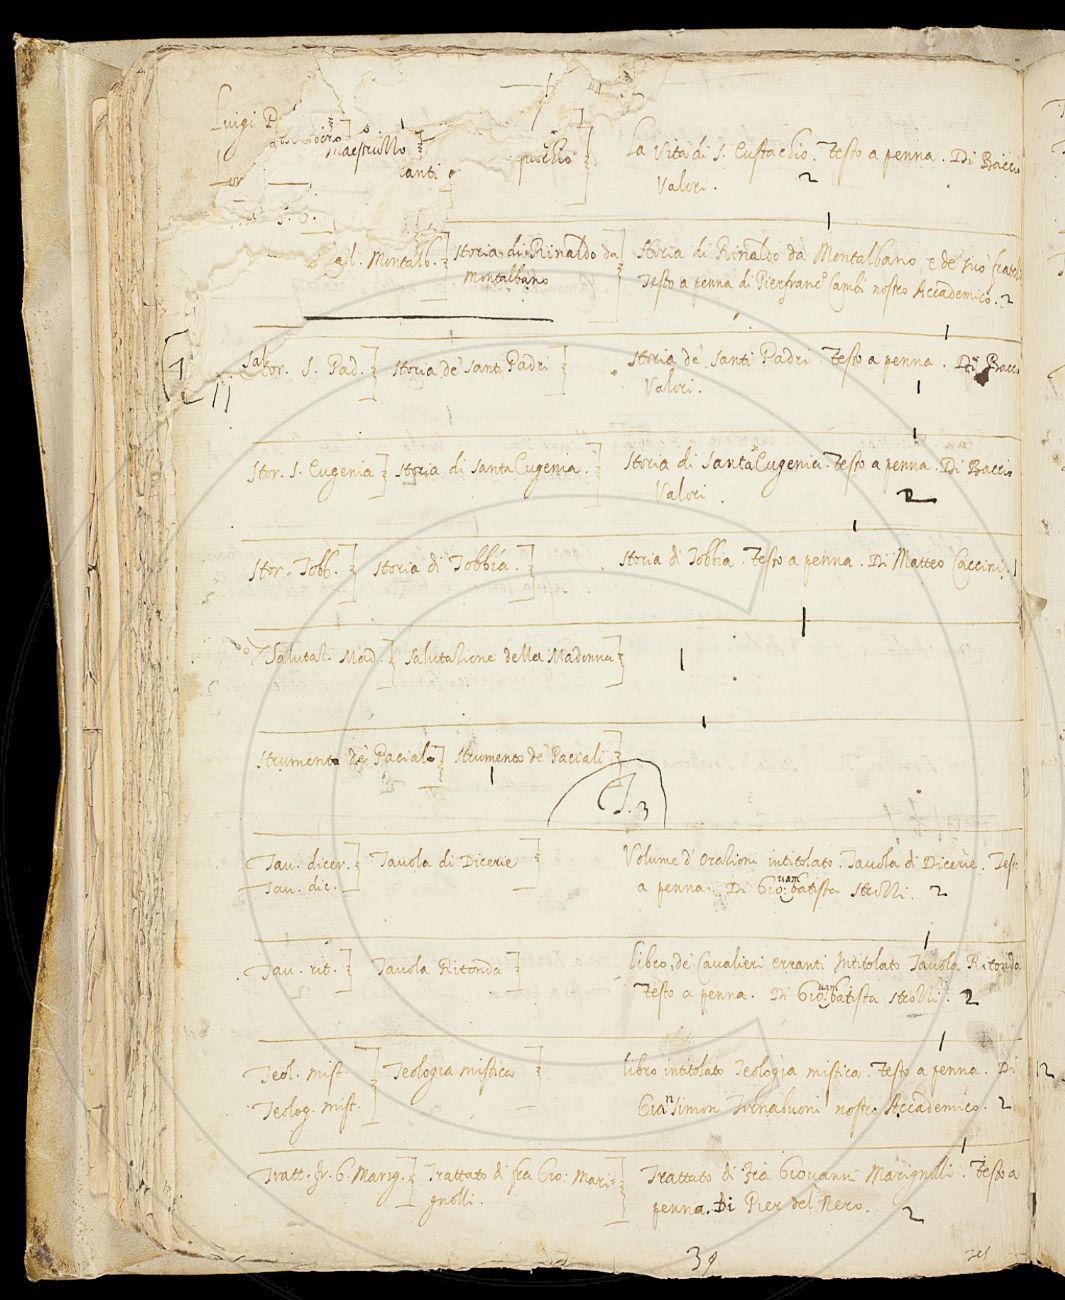 Luigi P
maestruzzo
La Vita di S. Eustachio. Testo a penna. Di Baccio
Valori. 2
Montalb. Storia di Rinaldo da Storia di Rinaldo da Montalbano, e de suo
Montalbano Testo a penna di Pierfranc.o Cambi nostro Accademico. 2
Stor. S. Pad. Storia de' Santi Padri Storia de' Santi Padri. Testo a penna. Di Baccio
Valori. 1
Stor. S. Eugenia Storia di Santa Eugenia. Storia di Santa Eugenia. Testo a penna. Di Baccio
Valori. 2
Stor. Tobb. Storia di Tobbia. Storia di Tobbia. Testo a penna. Di Matteo Caccini. 1
Salutaz. Mad. Salutazione della Madonna 1
Strumento de' Paciali Strumento de' Paciali
1
T. 3
Tav. dicer. Tavola di Dicerie Volume d' Orazioni intitolato Tavola di Dicerie. Test
Tav. dic. a penna. Di Gio:vambatista Strozzi. 2
Tav. rit. Tavola Ritonda Libro, de' Cavalieri erranti Intitolato Tavola Ritonda
Testo a penna. Di Gio:vambatista Strozzi. 2
Teol. mist. Teologia mistica Libro intitolato Teologia mistica. Testo a penna. Di
Teolog. mist. Giansimon Tornabuoni nostro Accademico. 2
Tratt. fr. G. Marig. Trattato di fra Gio: Mari= Trattato di Fra Giovanni Marignolli. Testo a
gnolli. penna. Di Pier del Nero. 2
39